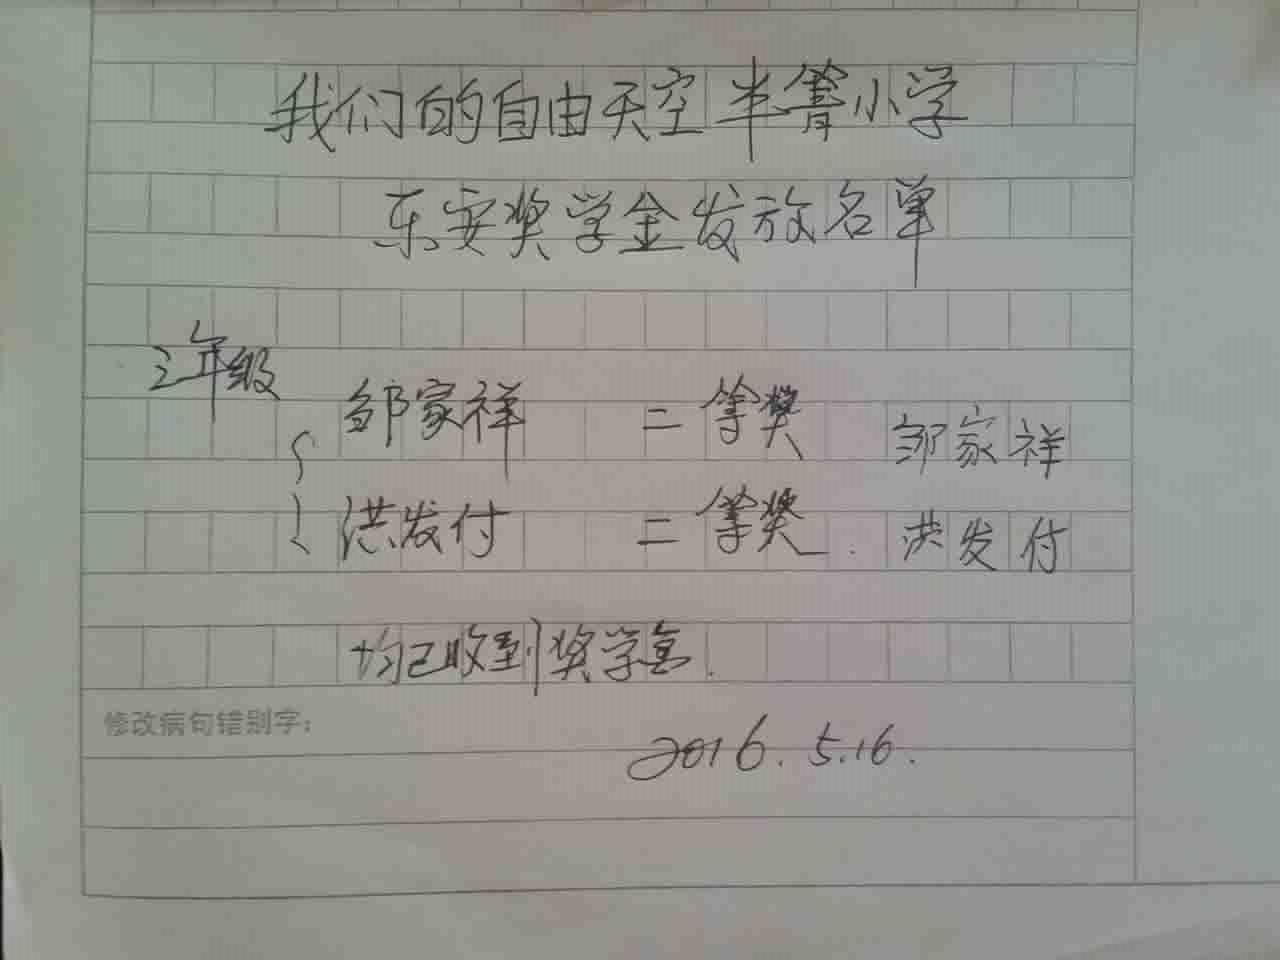 我们的自由天空半箐小学
东安奖学金发放名单
三年级
邹家祥 二等奖 邹家祥
洪发付 二等奖. 洪发付
均已收到奖学金.
修改病句错别字:
2016.5.16.